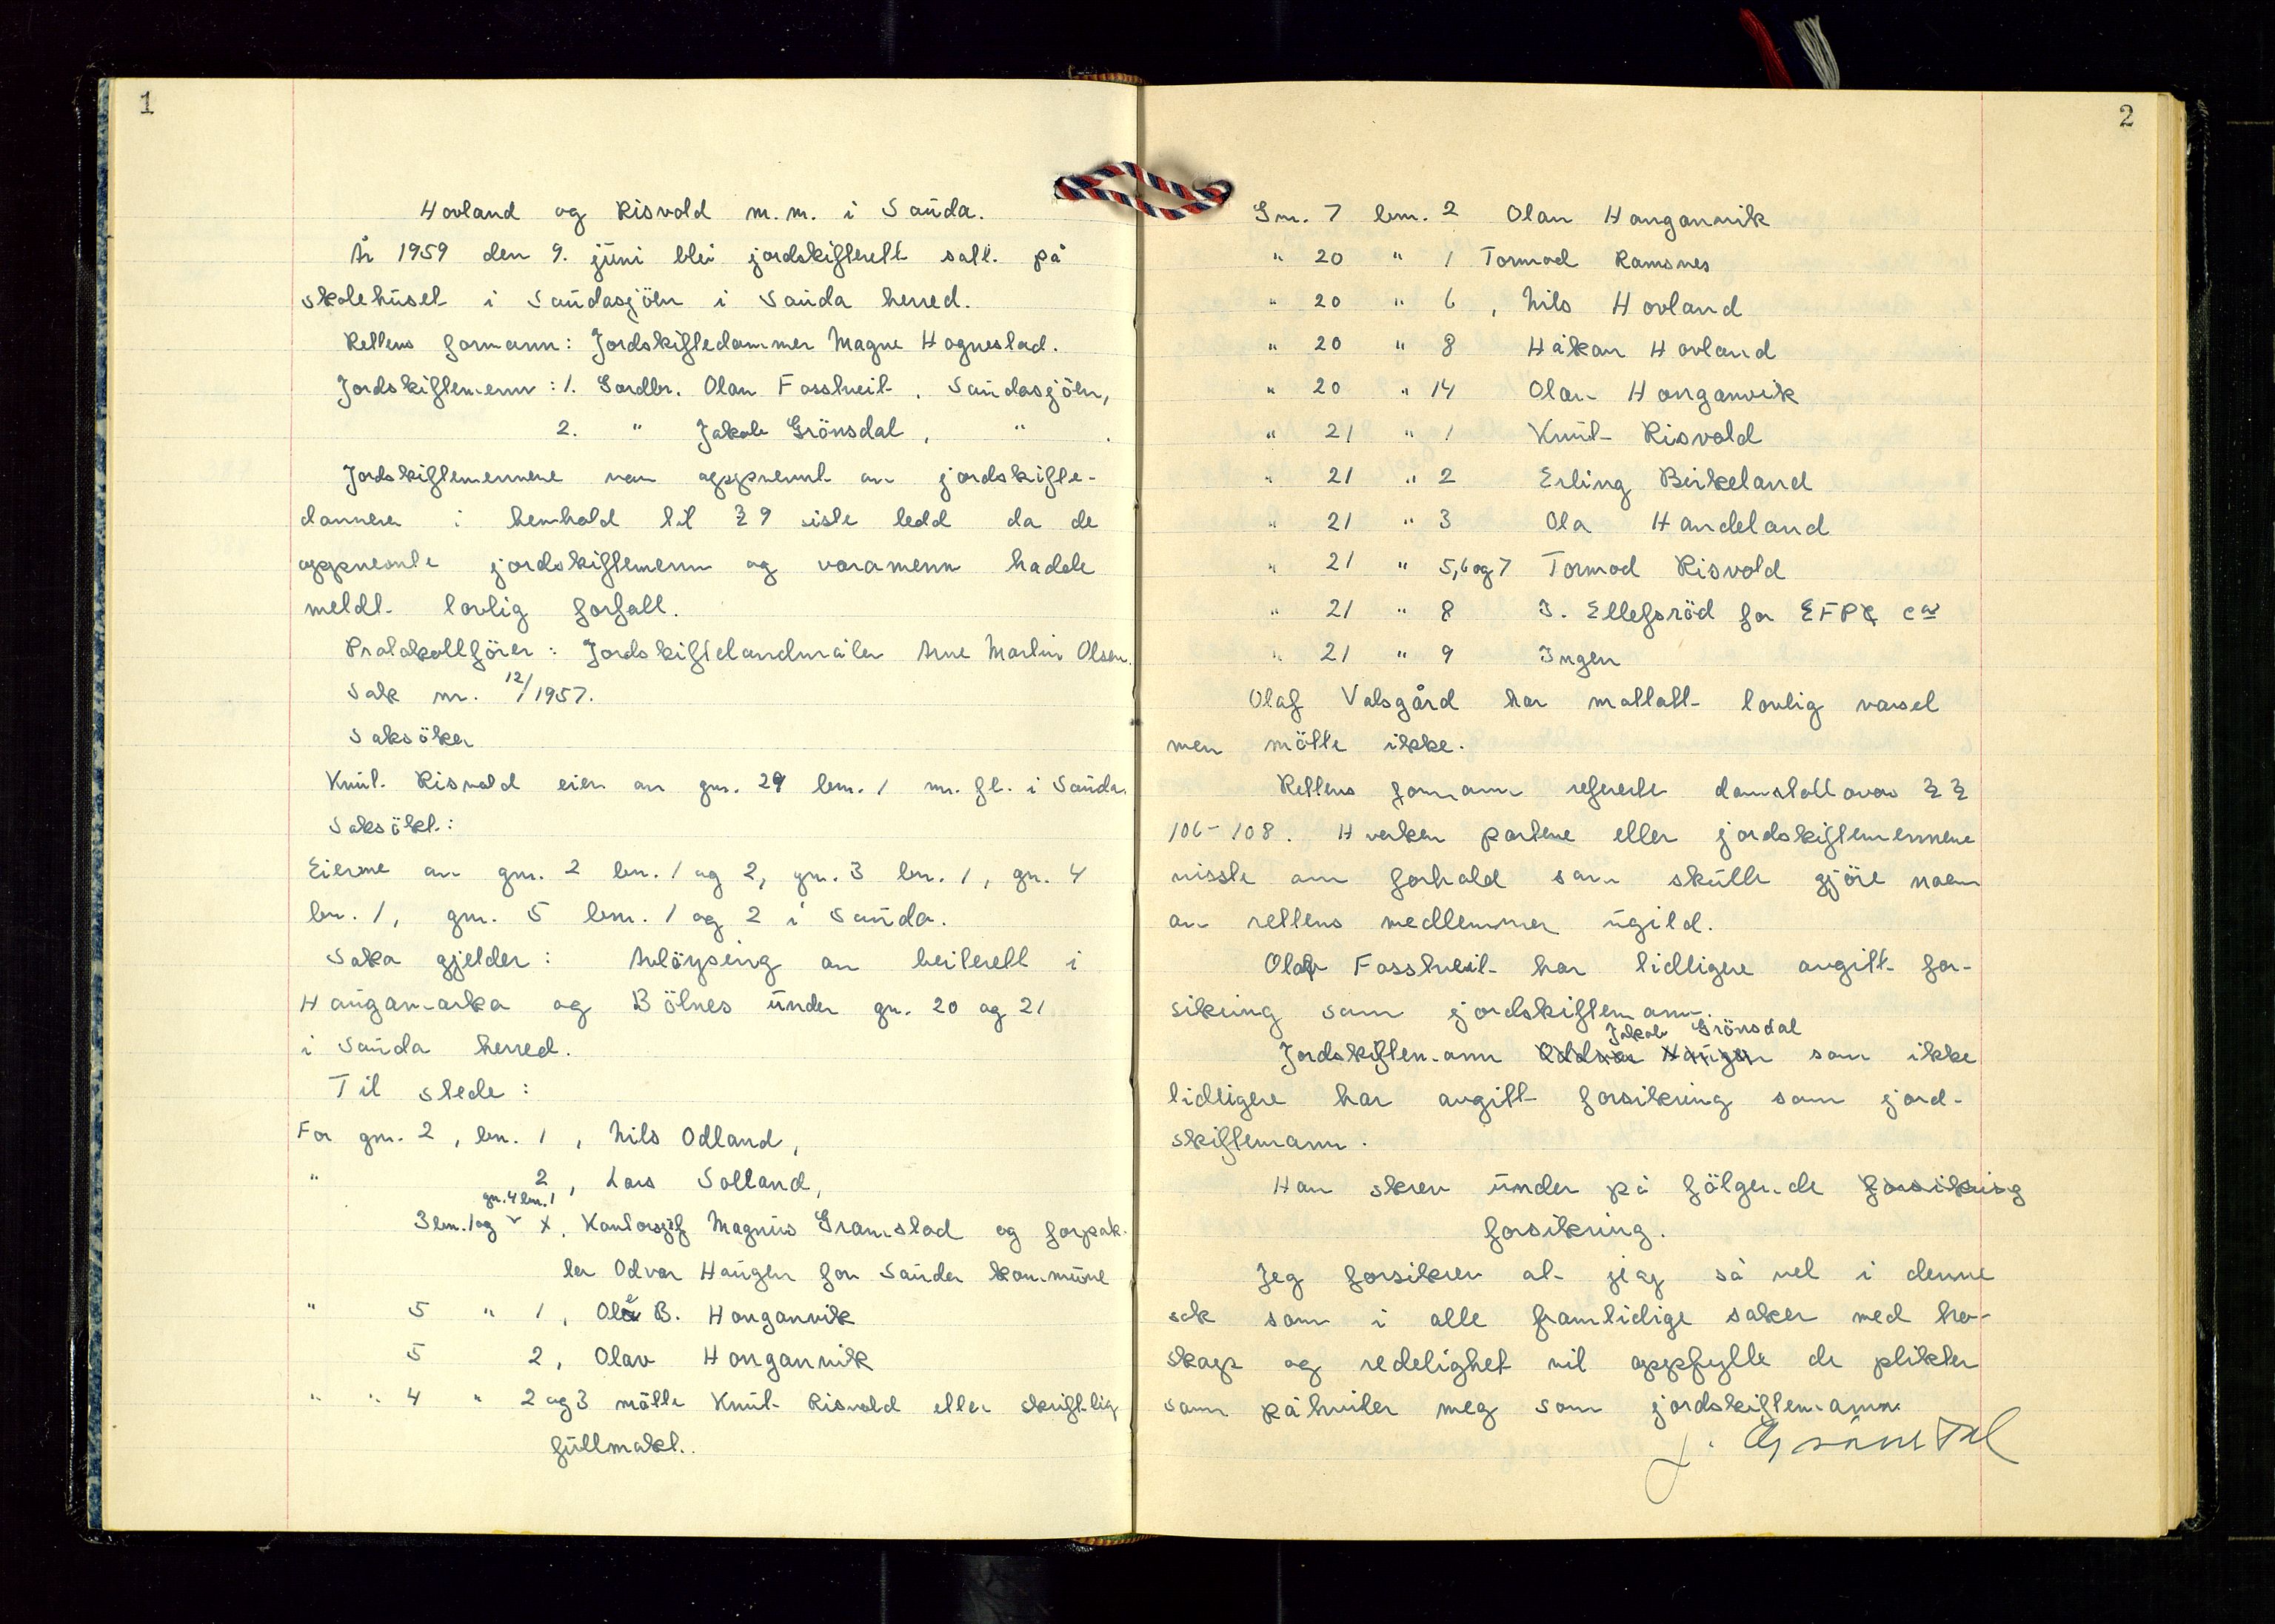 1
Hovland og Risvold m.m. i Sauda.
År 1959 den 9. juni blei jordskifterett satt på
skolehuset i Saudasjöen i Sauda herred.
Rettens formann: Jordskiftedommer Magne Hognestad.
Jordskiftemenn: 1. Gardbr. Olav Fosstveit, Saudasjöen,
2. " Jakob Grönsdal, " .
Jordskiftemennene var oppnevnt av jordskifte-
dommeren i henhold til § 9 siste ledd da de
oppnevnte jordskiftemenn og varamenn hadde
meldt lovlig forfall.
Protokollförer: Jordskiftelandmåler Arne Martin Olsen.
Sak nr. 12/1957.
Saksöker
Knut Risvold eier av gnr. 21 bnr. 1 m. fl. i Sauda.
Saksökt:
Eierne av gnr. 2 bnr. 1 og 2, gnr. 3 bnr. 1, gnr. 4
bnr. 1, gnr. 5 bnr. 1 og 2 i Sauda.
Saka gjelder: Avlöysing av beiterett i
Haugamarka og Bölnes under gnr. 20 og 21
i Sauda herred.
Til stede:
For gnr. 2, bnr. 1, Nils Odland,
" 2, Lars Solland,
gnr. 4 bnr. 1
3 bnr. 1 og Kontorsjef Magnus Gramstad og forpak-
ter Odvar Haugen for Sauda kommune
" 5 " 1, Ole B. Honganvik
5 2, Olav Honganvik
" " 4 " 2 og 3 mötte Knut Risvold etter skriftlig
fullmakt.
2
Gnr. 7 bnr. 2 Olav Honganvik
" 20 " 1 Tormod Ramsnes
" 20 " 6, Nils Hovland
" 20 " 8 Håkon Hovland
" 20 " 14 Olav Honganvik
" 21 " 1 Knut Risvold
" 21 " 2 Erling Birkeland
" 21 " 3 Ola Handeland
" 21 " 5, 6 og 7 Tormod Risvold
" 21 " 8 I. Ellefsröd for EFP Co
" 21 " 9 Ingen
Olaf Valsgård har mottatt lovlig varsel
men mötte ikke.
Rettens formann refererte domstollovens §§
106-108. Hverken partene eller jordskiftemennene
visste om forhold som skulle gjöre noen
av rettens medlemmer ugild.
Olav Fosstveit har tidligere avgitt for-
sikring som jordskiftemann.
Jakob Grönsdal
Jordskiftemann Oddvar Haugen som ikke
tidligere har avgitt forsikring som jord-
skiftemann.
Han skrev under på fölgende forsikring
forsikring.
Jeg forsikrer at jeg så vel i denne
sak som i alle framtidige saker med tro-
skap og redelighet vil oppfylle de plikter
som påhviler meg som jordskiftemann.
J. Grönsdal